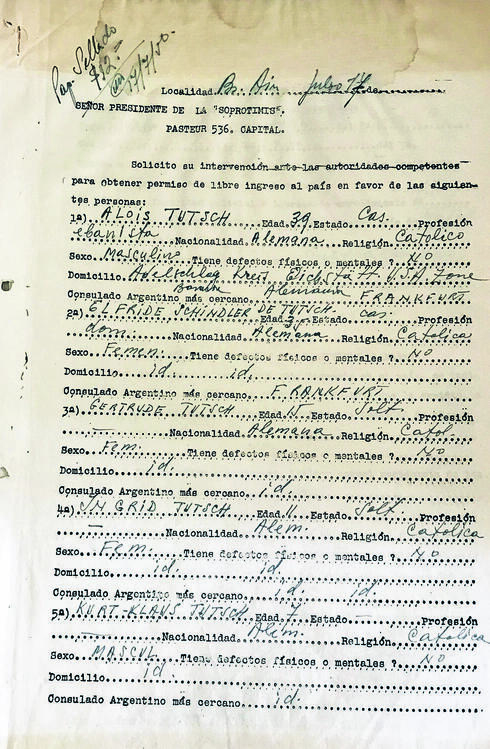 Pag. Sellado
$12.-
17/7/50.
Localidad. Bs. Air. Julio 17 de
SEÑOR PRESIDENTE DE LA "SOPROTIMIS".
PASTEUR 536. CAPITAL.
Solicito su intervención ante las autoridades competentes
para obtener permiso de libre ingreso al país en favor de las siguien-
tes personas:
1a) ALOIS TUTSCH Edad.39.Estado. Cas. Profesión
ebanista Nacionalidad. Alemana Religión. Católico
Sexo. Masculino Tiene defectos físicos o mentales ?. NO
Domicilio. Adelschlag Kreis Eichstätt U.S.A. Zone
Alemania
Consulado Argentino más cercano. FRANKFURT.
2a) ELFRIDE SCHINDLER DE TUTSCH. Edad. Estado. cas. Profesión
dom. Nacionalidad. Alemana Religión. Católica
Sexo. Femen. Tiene defectos físicos o mentales ?. NO
Domicilio. id. id.
Consulado Argentino más cercano. FRANKFURT
3a) GERTRUDE TUTSCH. Edad 15 Estado. Solt. Profesión
— Nacionalidad. Alemana Religión. Catól.
Sexo. Fem. Tiene defectos físicos o mentales ?. NO
Domicilio. id.
Consulado Argentino más cercano. id.
4a) INGRID TUTSCH Edad 11 Estado. Solt Profesión
— Nacionalidad. Alem. Religión. Católica
Sexo. Fem. Tiene defectos físicos o mentales ?. NO
Domicilio. id. id.
Consulado Argentino más cercano. id. id.
5a) KURT-KLAUS TUTSCH Edad. 7 Estado. — Profesión
— Nacionalidad. Alem. Religión. Católica
Sexo. MASCUL. Tiene defectos físicos o mentales ?. NO
Domicilio. id.
Consulado Argentino más cercano. id.